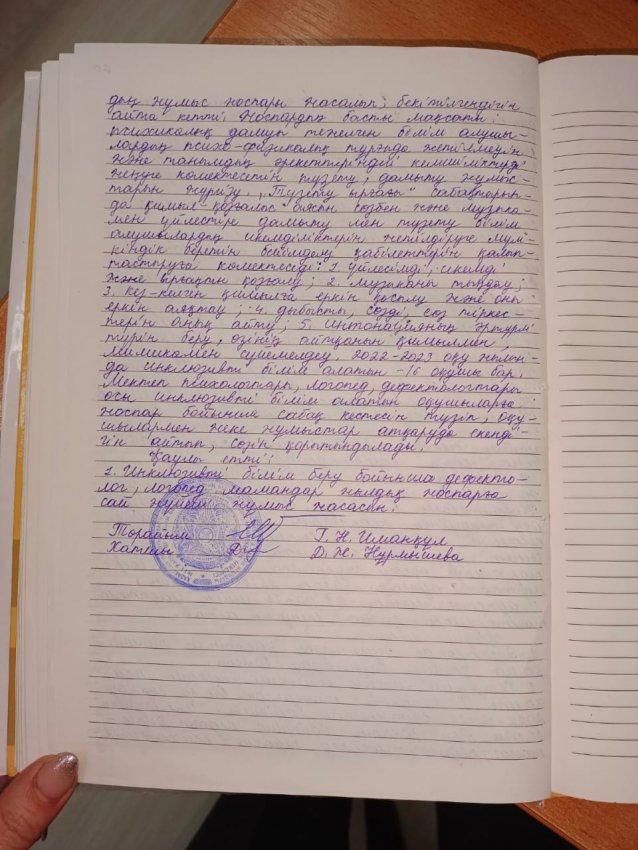 дық жұмыс жоспары жасалып, бекітілгендігін
айта кетті. Жоспардың басты мақсаты:
психикалық дамуы тежелген білім алушы-
лардың психо-физикалық тұрғыда жетілмеуін
және танымдық әрекеттеріндегі келіспіліктерді
жеңуге көмектесетін түзету, дамыту жұмыс-
тарын жүргізу. „Түзету ырғағы" сабақтарын-
да қимыл-қозғалыс жағын сөзбен және музыка-
мен үйлестіре дамыту мен түзету білім
алушылардың икемділіктерін жетілдіруге мүм-
кіндік беретін бейімделу қабілеттерін қалып-
тастыруға көмектеседі: 1. Үйлесімді, икемді
және ырғақты қозғалу; 2. Музыканы тыңдау;
3. Кез-келген қимылға еркін қосылу және оны
еркін аяқтау; 4. дыбысты, сөзді, сөз тіркес-
терін анық айту; 5. Интонацияның әртүрлі
түрін беру, өзінің айтқанын қимылмен,
мимикамен сүйемелдеу. 2022-2023 оқу жылын-
да инклюзивті білім алатын -16 оқушы бар.
Мектеп психологтары, логопед, дефектологтары
осы инклюзивті білім алатын оқушыларға
жоспар бойынша сабақ кестесін түзіп, оқу-
шылармен жеке жұмыстар атқаруда екенді-
гін айтып, сөзін қорытындылады.
Қаулы етті:
1. Инклюзивті білім беру бойынша дефекто-
лог, логопед мамандар жылдық жоспарға
сай жүйелі жұмыс жасасын.
Төрайым Г. Н. Иманқұл
Хатшы Д. Ж. Нурмышева